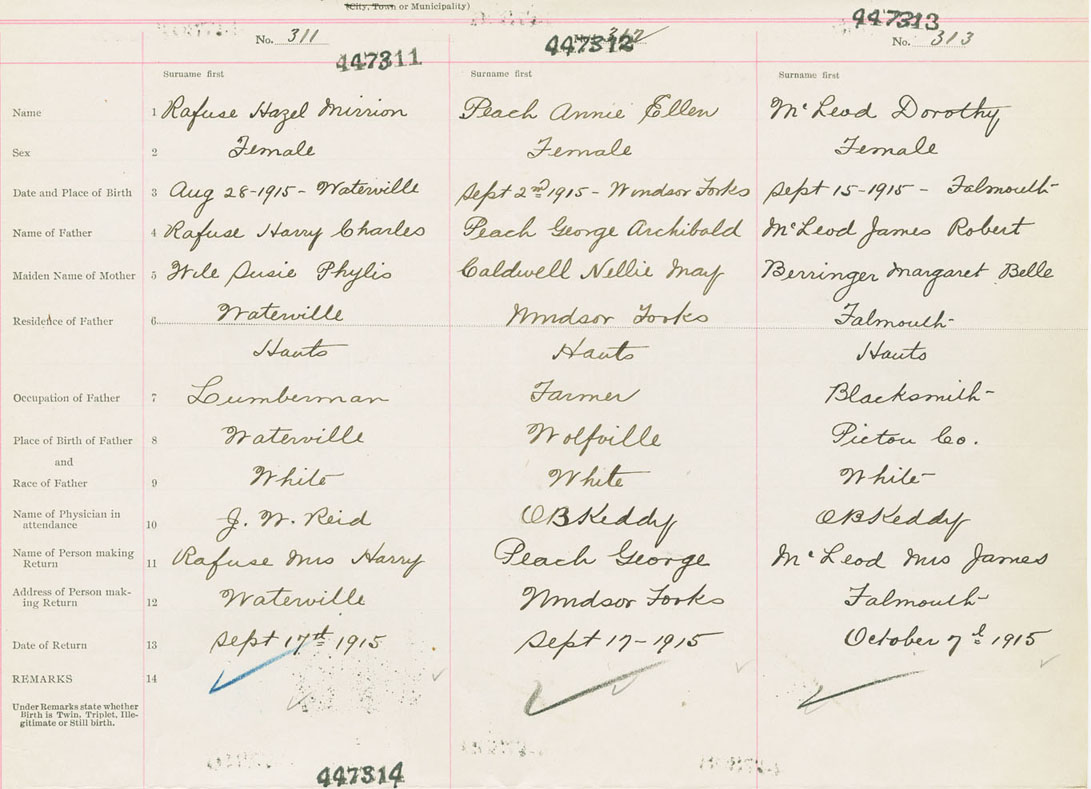 (City, Town or Municipality)
No. 311 447311
447312 No. 312
447313 No. 313
Surname first Surname first Surname first
Name 1 Rafuse Hazel Mirrion Peach Annie Ellen McLeod Dorothy
Sex 2 Female Female Female
Date and Place of Birth 3 Aug 28-1915- Waterville Sept 2nd 1915 - Windsor Forks Sept 15-1915 - Falmouth
Name of Father 4 Rafuse Harry Charles Peach George Archibald McLeod James Robert
Maiden Name of Mother 5 Wile Susie Phylis Caldwell Nellie May Berringer Margaret Belle
Residence of Father 6 Waterville Windsor Forks Falmouth
Hants Hants Hants
Occupation of Father 7 Lumberman Farmer Blacksmith
Place of Birth of Father 8 Waterville Wolfville Pictou Co.
and
Race of Father 9 White White White
Name of Physician in attendance 10 J. W. Reid OB Keddy OB Keddy
Name of Person making Return 11 Rafuse Mrs Harry Peach George McLeod Mrs James
Address of Person mak-
ing Return 12 Waterville Windsor Forks Falmouth
Date of Return 13 Sept 17th 1915 Sept 17-1915 October 7th 1915
REMARKS 14
Under Remarks state whether
Birth is Twin, Triplet, Ille-
gitimate or Still birth.
447314